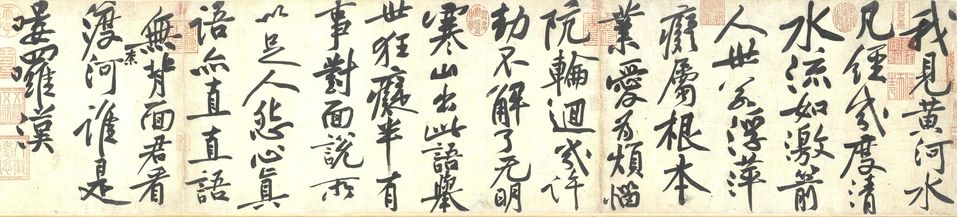 我見黃河水
凡經幾度清
水流如激箭
人世若浮萍
癡屬根本
業愛為煩惱
阬輪迴幾許
劫不解了无明
寒山出此語舉
世狂癡半有
事對面說所
以足人怨心真
語亦直直語
無背面君看
渡奈河誰是
嘍羅漢